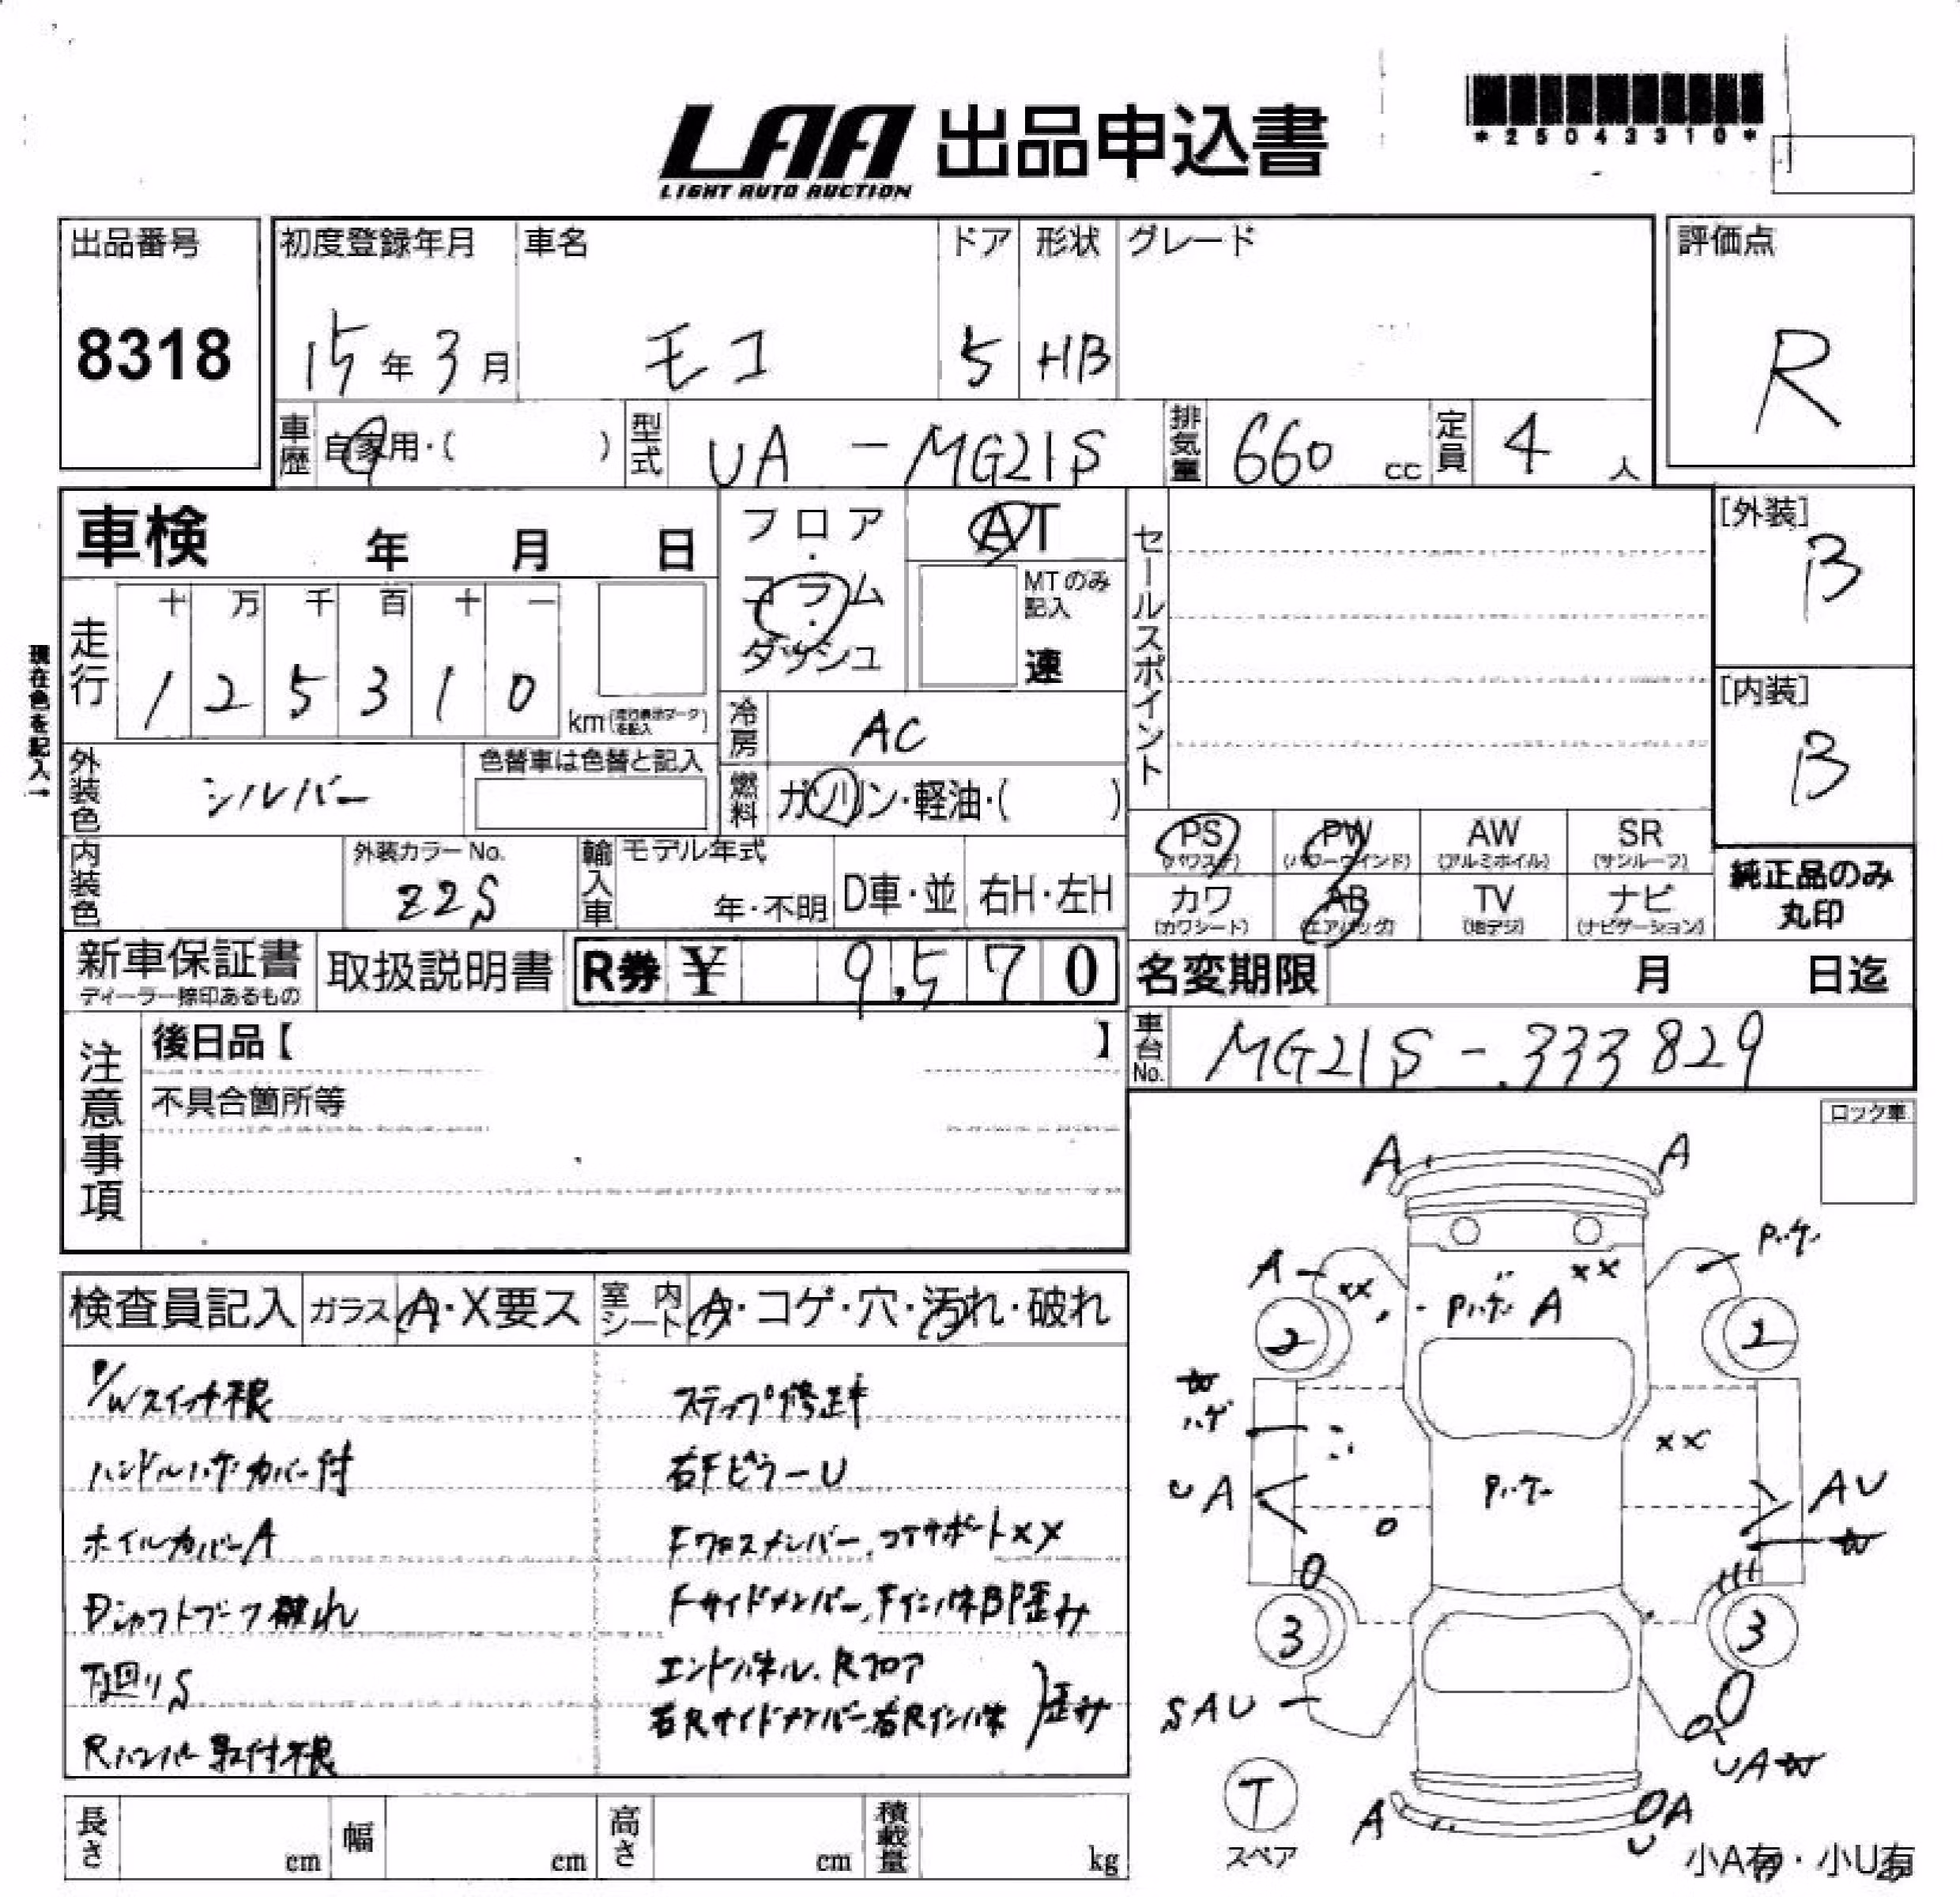 LAA 出品申込書
LIGHT AUTO AUCTION
*25043310*
出品番号
8318
初度登録年月 車名 ドア 形状 グレード
15年3月 モコ 5 HB
評価点
R
車歴 自家用・( ) 型式 UA - MG21S 排気量 660 cc 定員 4 人
車検 年 月 日
フロア・コラム・ダッシュ
AT
MTのみ記入
速
セールスポイント
[外装]
B
[内装]
B
現在色を記入→
走行 十 万 千 百 十 一
1 2 5 3 1 0 km(走行表示マークを記入)
冷房 AC
外装色 シルバー 色替車は色替と記入
燃料 ガソリン・軽油・( )
内装色 外装カラーNo. Z2S
輸入車 モデル年式 年・不明 D車・並 右H・左H
PS (パワステ) PW (パワーウインド) AW (アルミホイル) SR (サンルーフ)
カワ (カワシート) AB (エアバッグ) TV (地デジ) ナビ (ナビゲーション)
純正品のみ
丸印
新車保証書 ディーラー捺印あるもの 取扱説明書 R券 ¥ 9,570
名変期限 月 日迄
車台No. MG21S-333829
注意事項
後日品【 】
不具合箇所等
ロック車
検査員記入 ガラス A・X要ス 室内シート A・コゲ・穴・汚れ・破れ
P/Wスイッチ不良
ハンドルハゲカバー付
ホイルカバーA
Dシャフトブーツ破れ
下廻りS
Rバンパー取付不良
ステップ修正キ
右FピラーU
Fクロスメンバー、コアサポートXX
Fサイドメンバー、FインパネBP歪み
エンドパネル、Rフロア
右Rサイドメンバー、右Rインパネ
歪み
A A
A XX XX
A
2 2
ハゲ
XX
UA AU
3 3
SAU UAW
T
スペア
A UA
小A有・小U有
長さ cm 幅 cm 高さ cm 積載量 kg